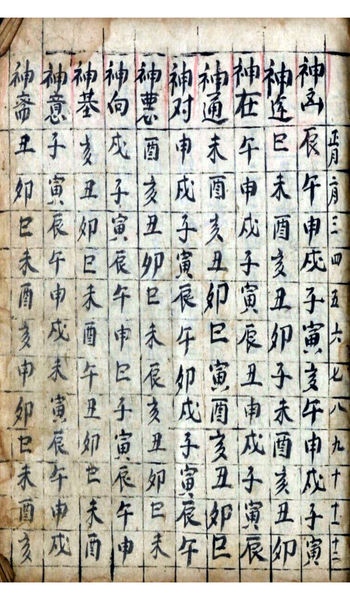 正月二月三四五六七八九十十一十二
神凶辰午申戌子寅亥午申戌子寅
神連巳未酉亥丑卯子未酉亥丑卯
神在午申戌子寅辰丑申戌子寅辰
神通未酉亥丑卯巳寅酉亥丑卯巳
神对申戌子寅辰午卯戌子寅辰午
神悪酉亥丑卯巳未辰亥丑卯巳未
神向戌子寅辰午申巳子寅辰午申
神基亥丑卯巳未酉午丑卯巳未酉
神意子寅辰午申戌未寅辰午申戌
神斋丑卯巳未酉亥申卯巳未酉亥